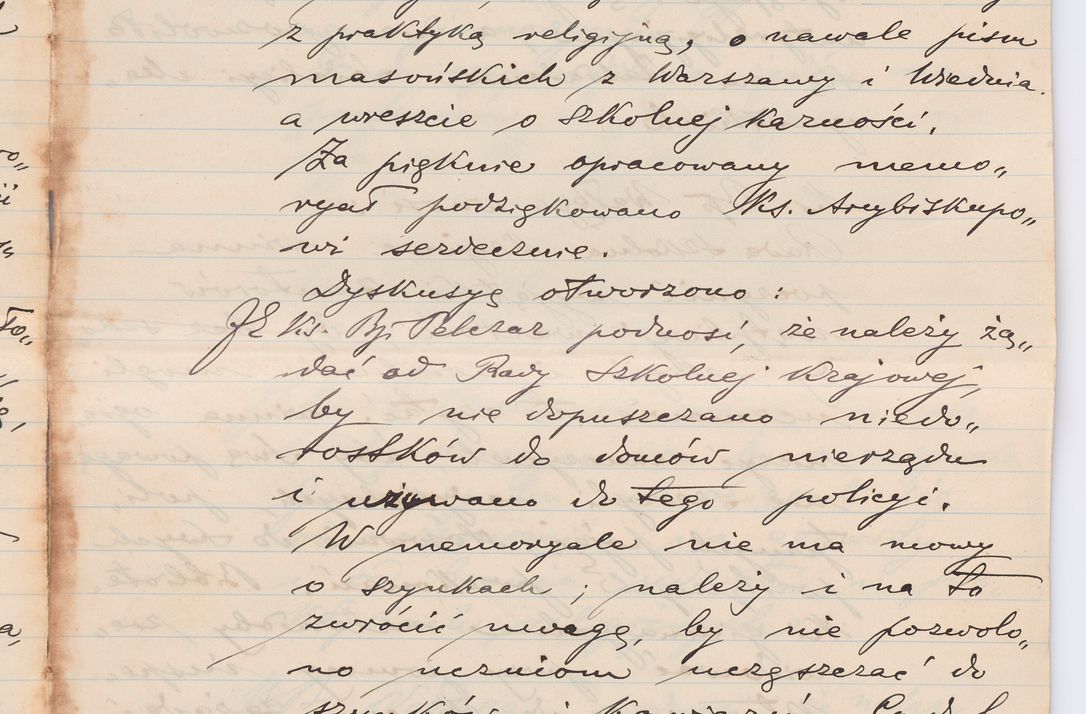 z praktyką religijną, o nawale pism
masońskich z Warszawy i Wiednia.
a wreszcie o szkolnej karności.
Za pięknie opracowany memo„
ryał podziękowano Ks. Arcybiskupo„
wi serdecznie.
Dyskusyę otworzono :
JE Ks. Bp. Pelczar podnosi, że należy żą„
dać od Rady Szkolnej Krajowej,
by nie dopuszczano niedo„
rostków do domów nierządu
i używano do tego policyi.
W memoryale nie ma mowy
o szynkach ; należy i na to
zwrócić uwagę, by nie pozwolo„
no uczniom uczęszczać do
szynków i kawiarń.